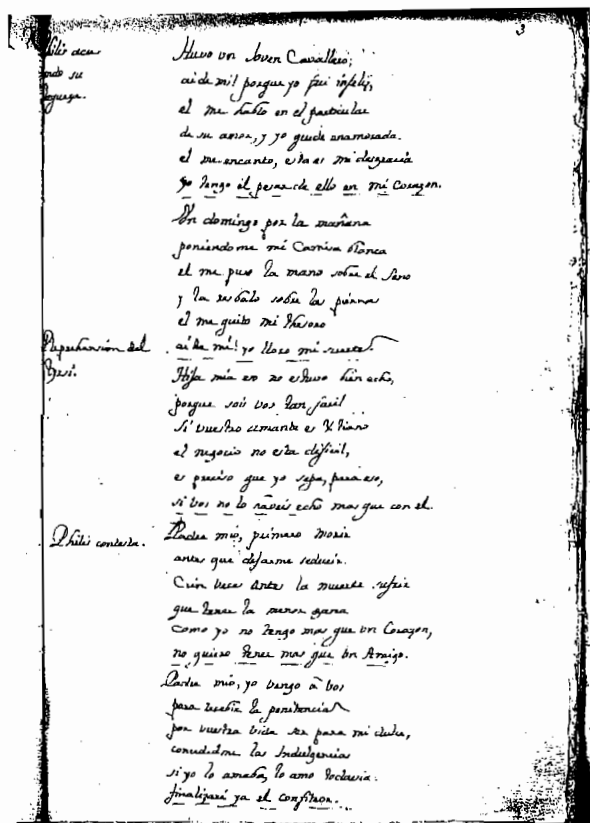 3
Philis acu
ando su
flaqueza.
Huvo un Joven Cavallero;
ai de mi! porque yo fui infeliz,
el me hablo en el particular
de su amor, y yo quede enamorada.
el me encanto, esta es mi desgracia
yo tengo el pesar de ello en mi Corazon.
Un domingo por la mañana
poniendome mi Camisa blanca
el me puso la mano sobre el seno
y la resbalo sobre las piernas
el me quito mi thesoro
ai de mi! yo lloro mi suerte.
Reprehension del
Hija mia eso no estuvo bien echo,
porque sois vos tan facil
si vuestro amante es Xtiano
el negocio no esta dificil,
es preciso que yo sepa, para eso,
si vos no lo haveis echo mas que con el.
Philis contesta.
Padre mio, primero morir
antes que dejarme seducir.
Cien veces antes la muerte sufrir
que tener la menor gana
como yo no tengo mas que un Corazon,
no quiero tener mas que un Amigo.
Padre mio, yo vengo â vos
para recibir la penitencia
por vuestra vida sea para mi dulce,
concededme las Indulgencias
si yo lo amaba, lo amo todavia.
finalizará ya el confiteor.